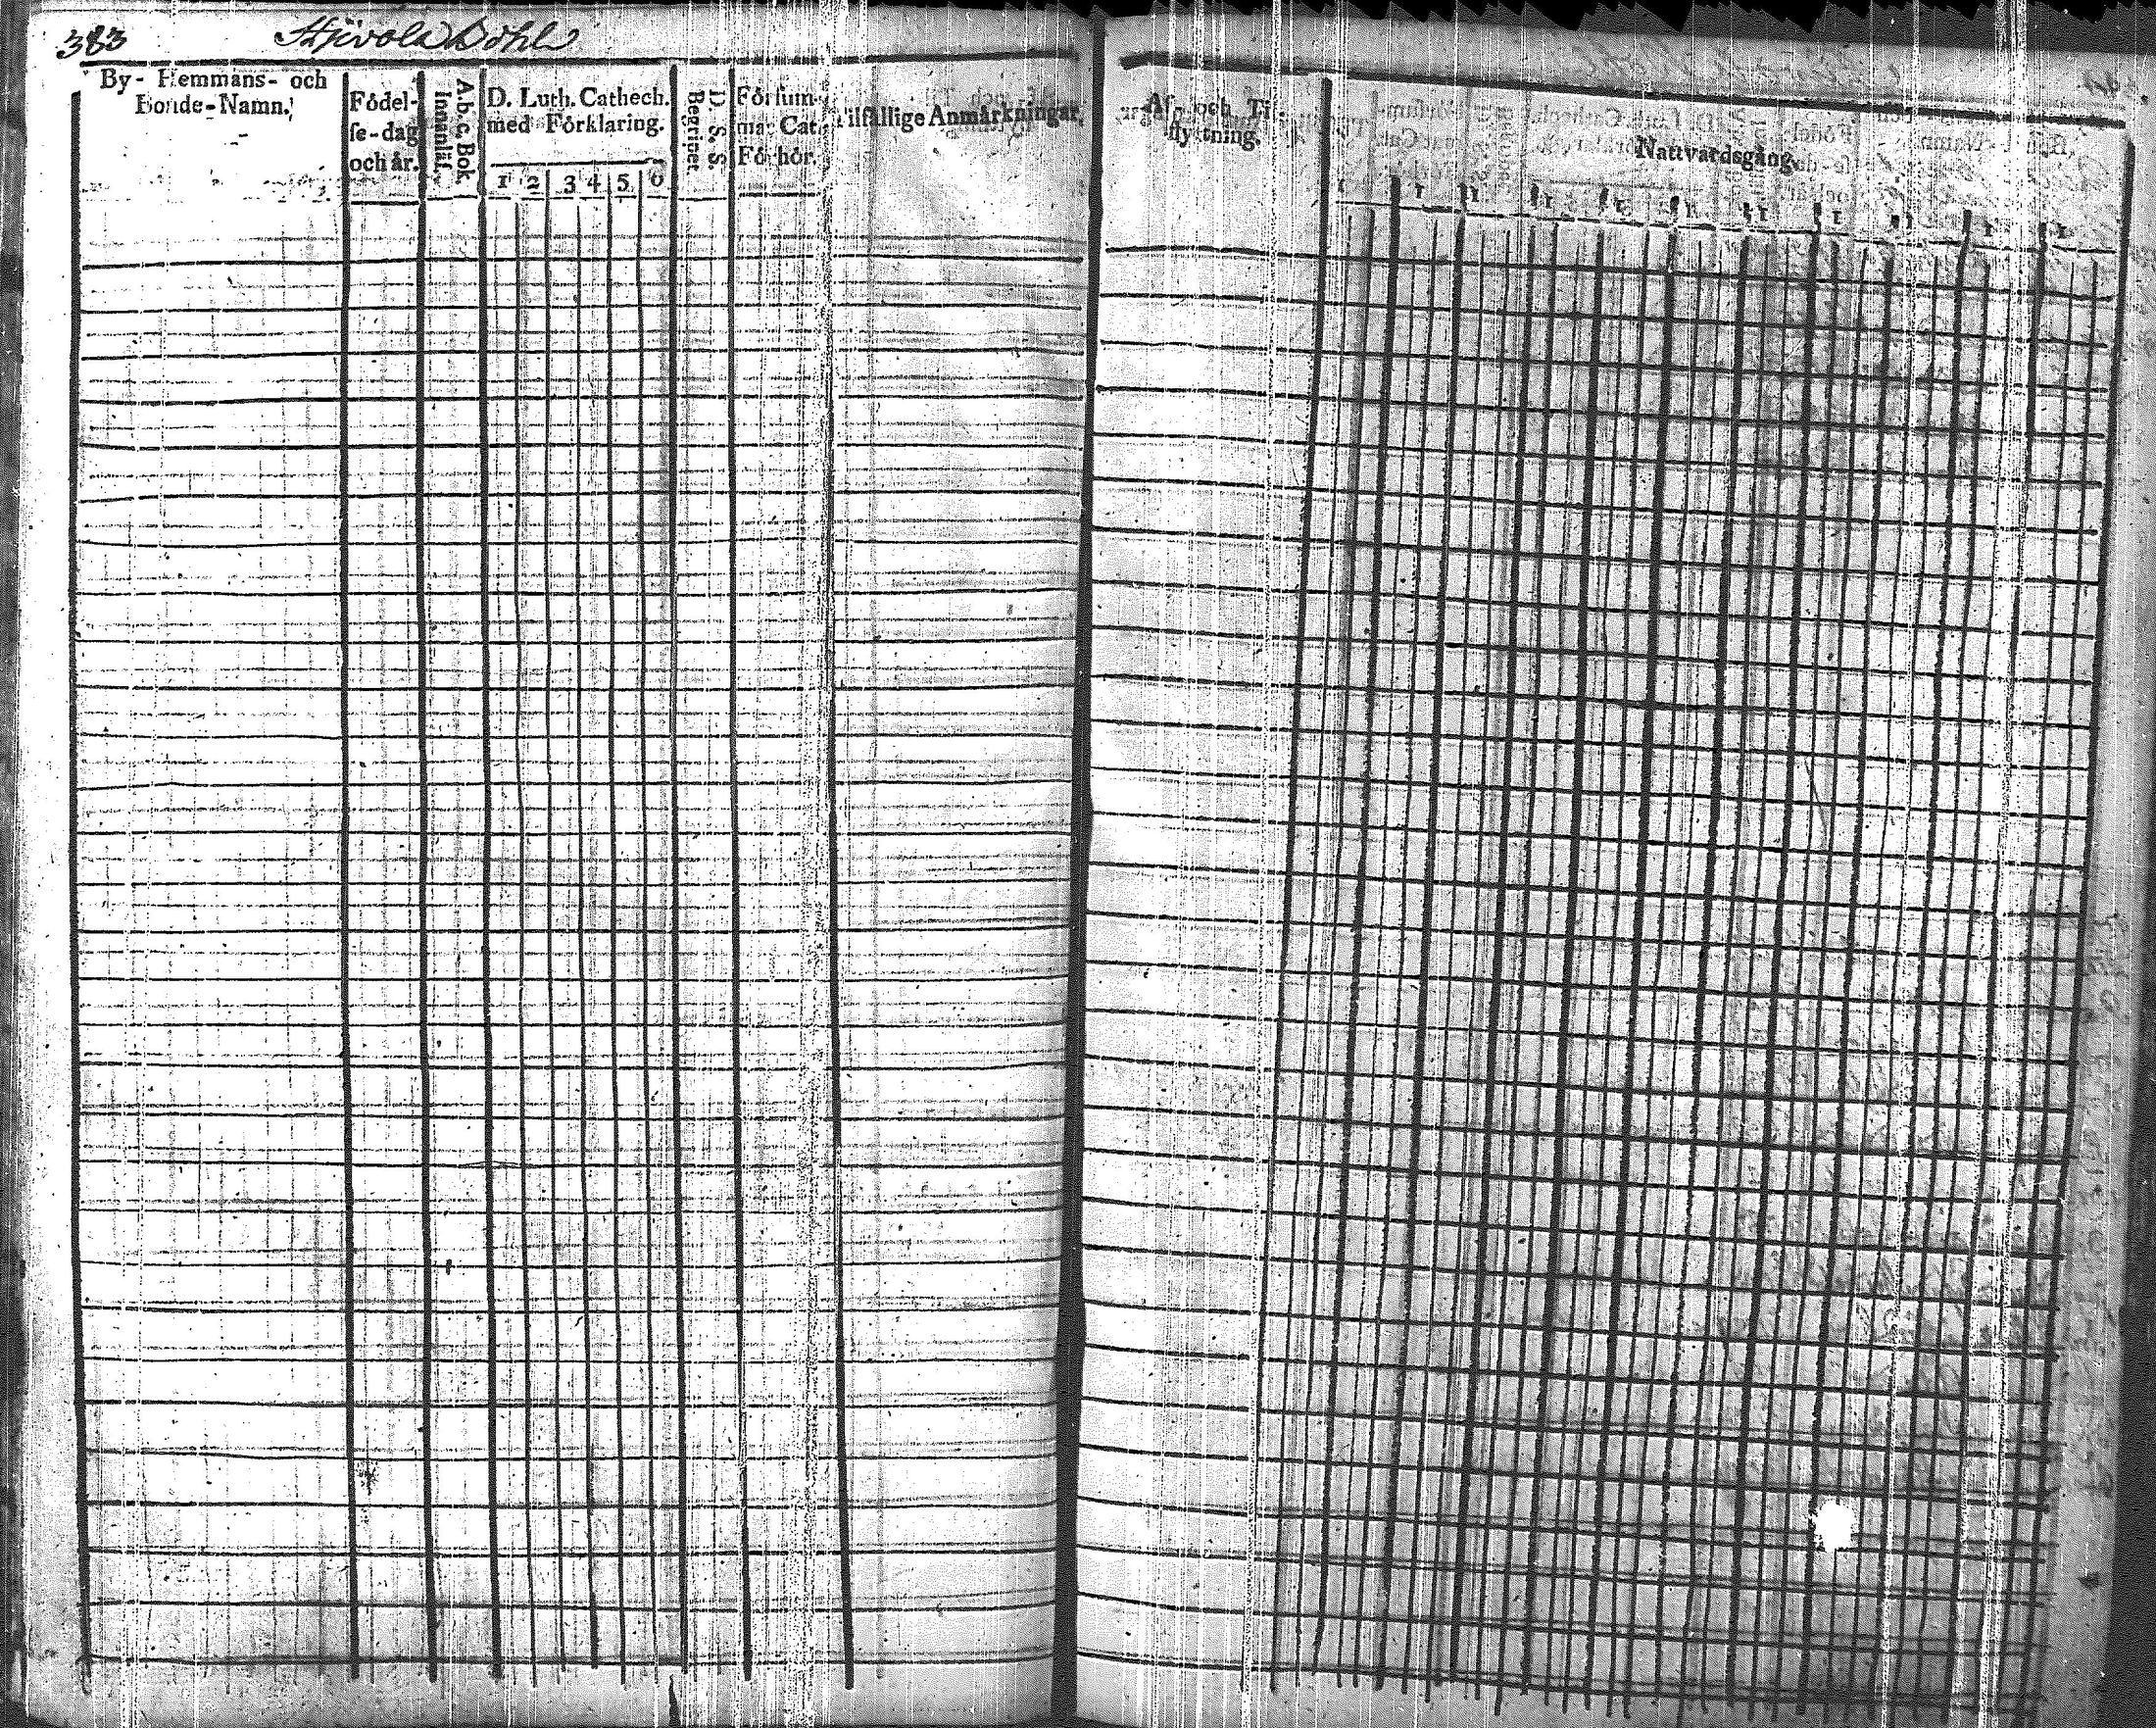 383 Hjvola Böhl
By- Hemmans- och
Bonde-Namn.
Födel-
se-dag
och år.
A.b.c. Bok.
Innanläs.
D. Luth. Cathech.
med Förklaring.
1 2 3 4 5 6
D. S. S.
Begripet
Försum-
mat Cat.
Förhör.
Tilfällige Anmärkningar.
Af- och Til-
flyttning.
Nattvardsgång.
1 1 1 1 1 1 1 1 1 1